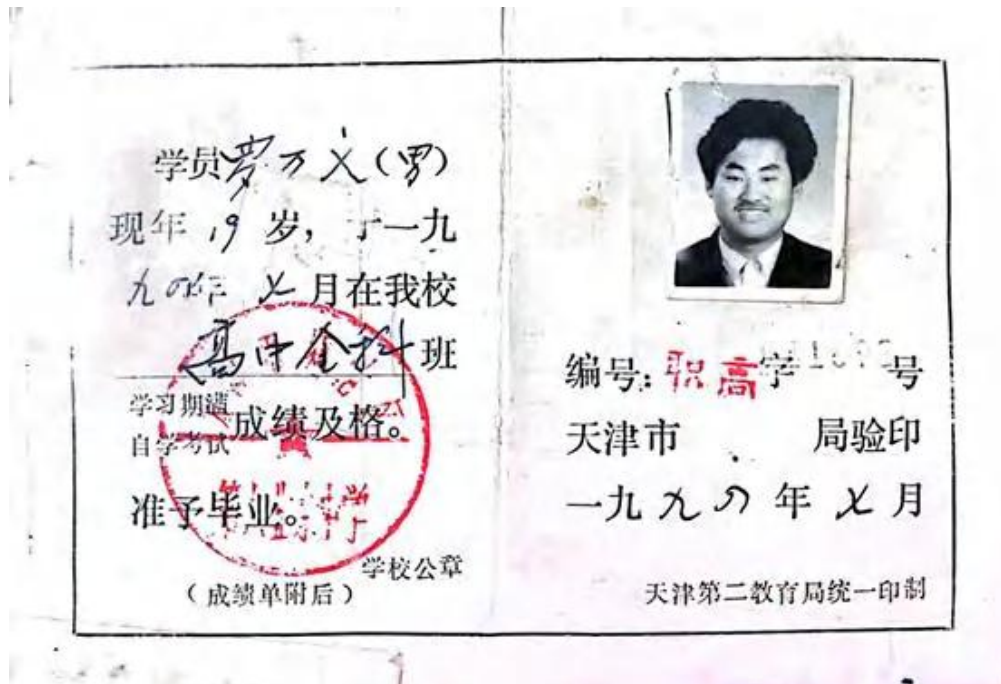 学员罗万义(男)
现年19岁，于一九
九四年七月在我校
高中全科班
学习期满
自学考试
成绩及格。
准予毕业。
学校公章
(成绩单附后)
编号：职高字 号
天津市 局验印
一九九四年七月
天津第二教育局统一印制